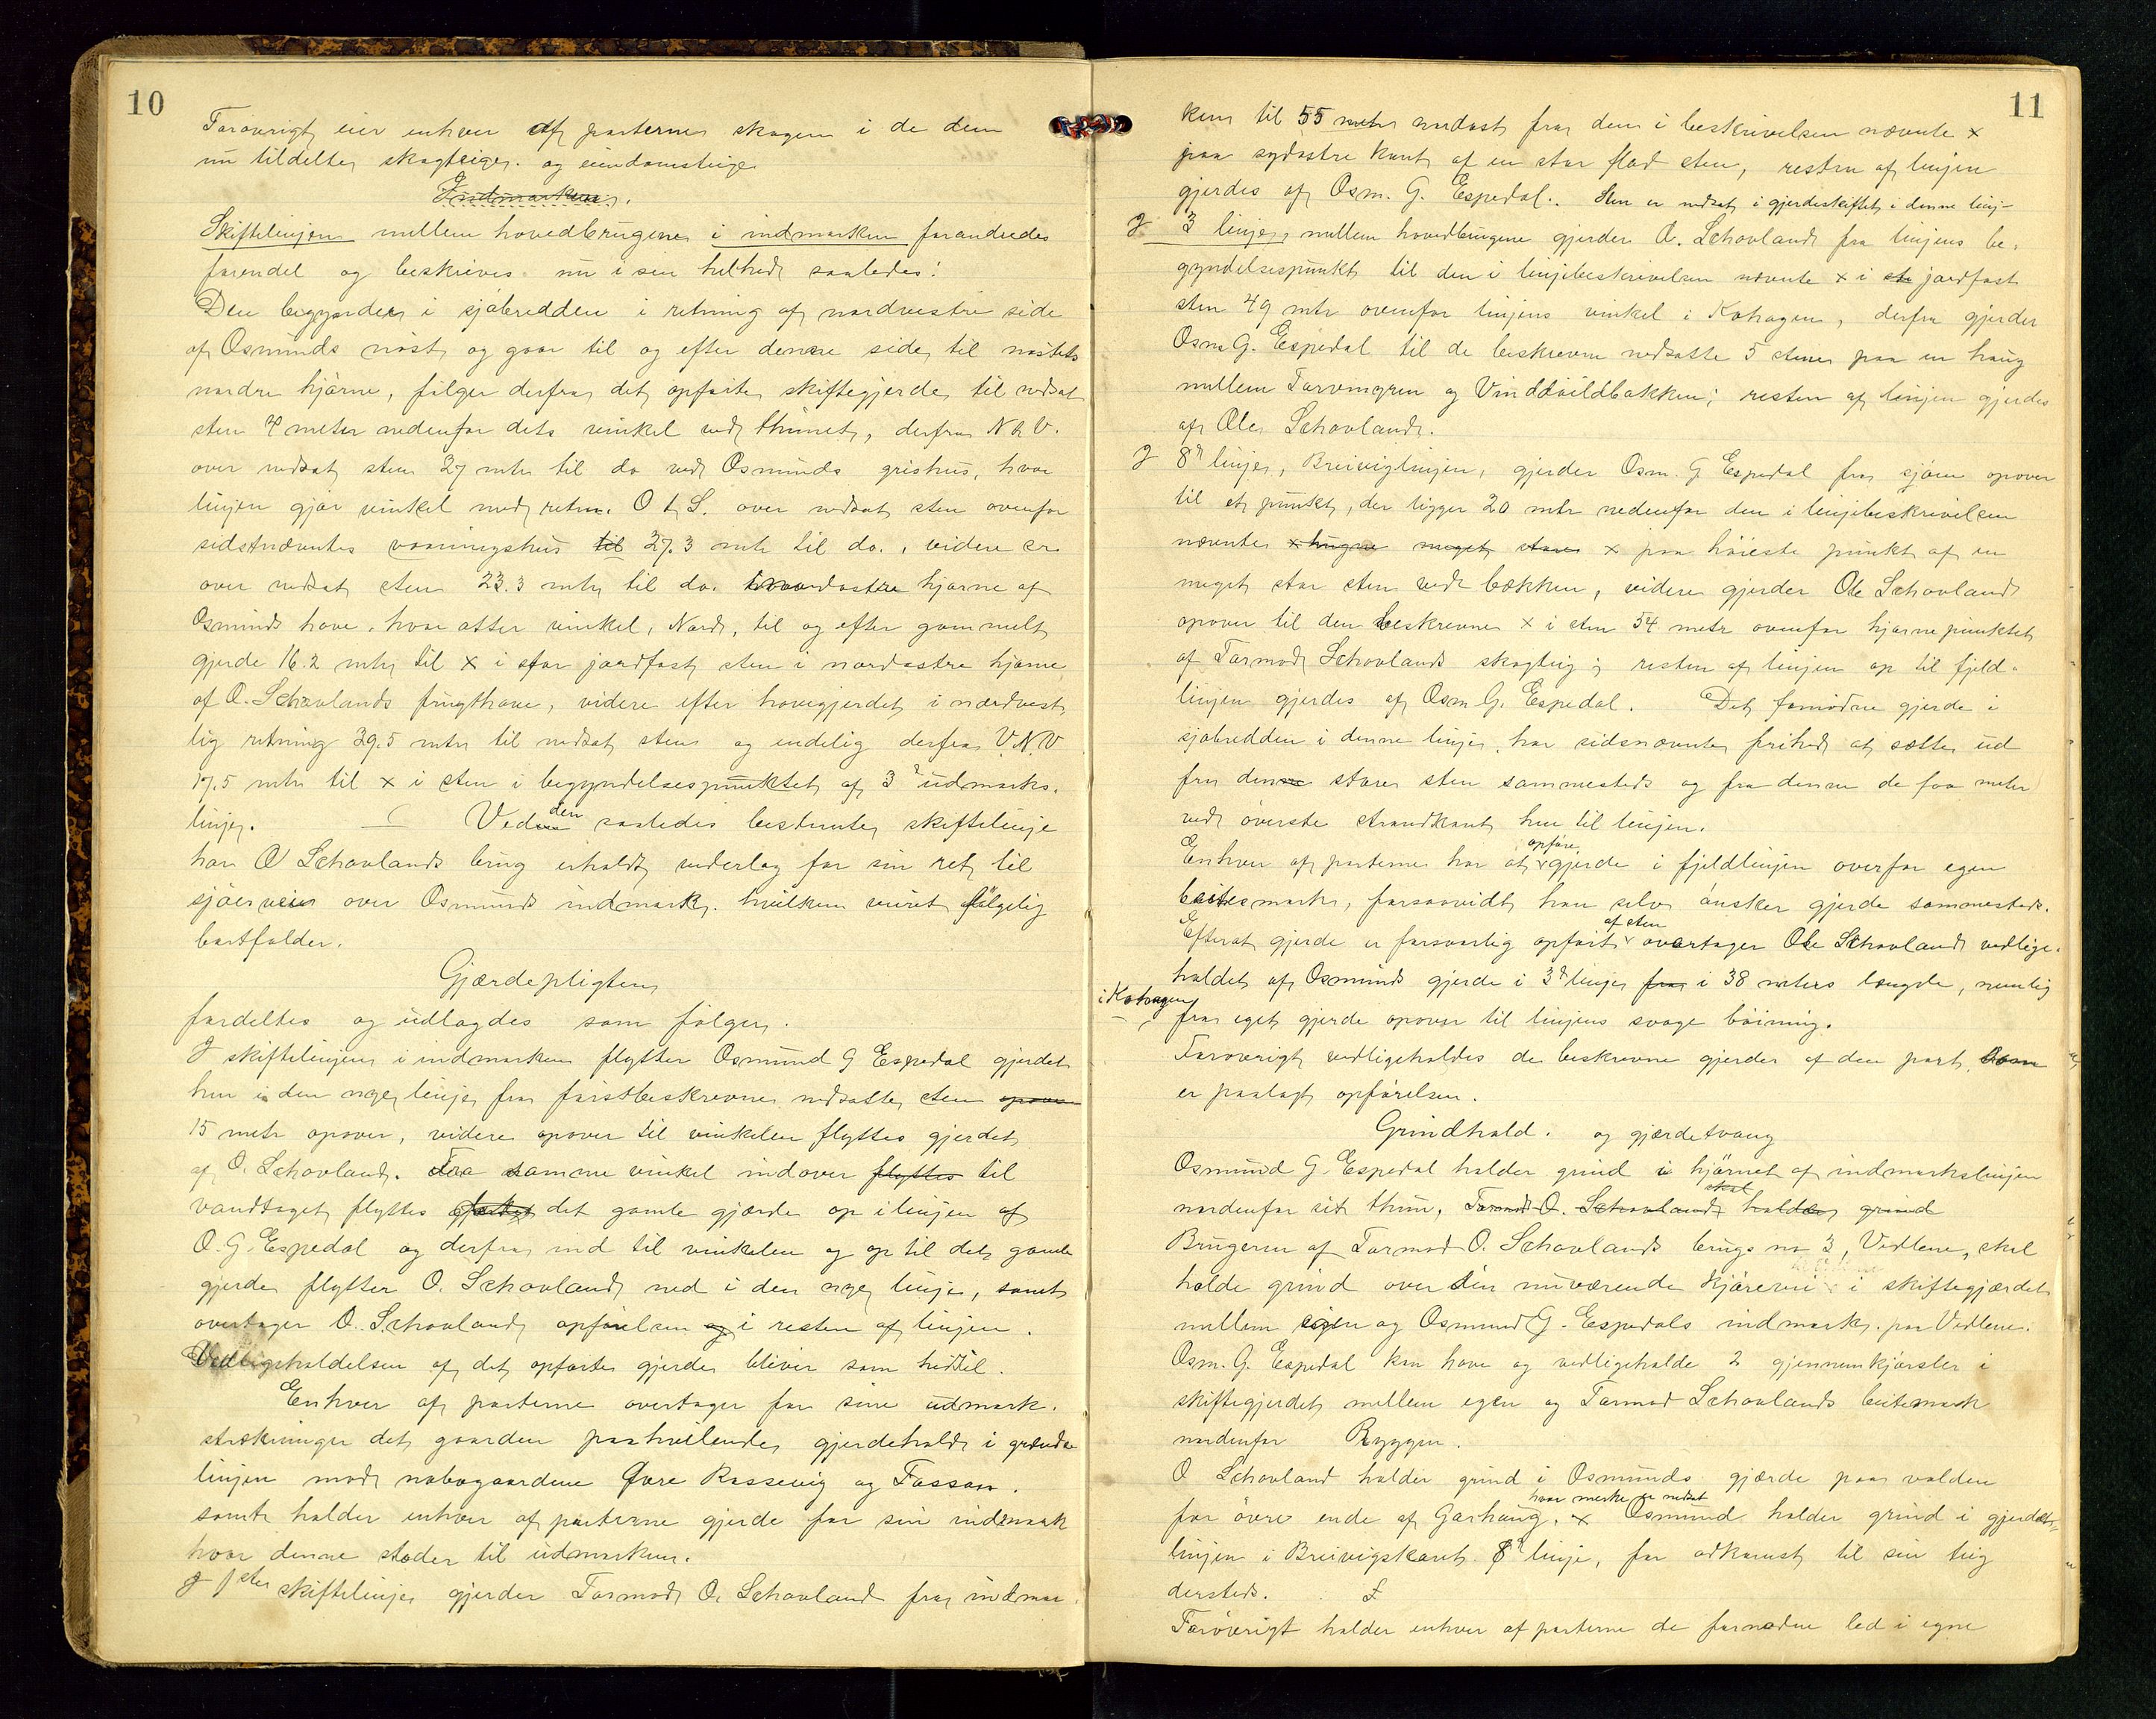 10
Forøvrigt eier enhver af parterne skogen i de dem
nu tildelte skogteiger. og eiendomsteige
Indmarken.
Skiftelinjen mellem hovedbrugene i indmarken forandredes
forendel og beskrives nu i sin helhed saaledes:
Den begynder i sjøbredden i retning af nordvestre side
af Osmunds nøst og gaar til og efter denne side til nøstets
nordre hjørne, følger derfra det opførte skiftegjerde til nedsat
sten 4 meter nedenfor dets vinkel ved thunet, derfra N t V.
over nedsat sten 27 mtr til do ved Osmunds grishus, hvor
linjen gjør vinkel med retn. O t S. over nedsat sten ovenfor
sidstnævntes vaaningshus til 27.3 mtr til do., videre
over nedsat sten 23.3 mtr til do. nordøstre hjørne af
Osmunds have, hvor atter vinkel, Nord, til og efter gammelt
gjerde 16.2 mtr til x i stor jordfast sten i nordøstre hjørne
af O. Schovlands frugthave, videre efter havegjerdet i nordvest
lig retning 39.5 mtr til nedsat sten og endelig derfra V.N.V
17.5 mtr til x i sten i begyndelsespunktet af 3d udmarks.
linje. Ved den saaledes bestemte skiftelinje
har O Schovlands brug erholdt vederlag for sin ret til
sjøerveier over Osmunds indmark. hvilken veiret følgelig
bortfalder.
Gjærdepligten
fordeltes og udlagdes som følger.
I skiftelinjen i indmarken flytter Osmund G Espedal gjerdet
hen i den nye linje fra førstbeskrevne nedsatte sten opover
15 metr opover, videre opover til vinkelen flyttes gjerdet
af O. Schovland. Fra samme vinkel indover flyttes til
vandtaget flyttes det gamle gjærde op i linjen af
O. G. Espedal og derfra ind til vinkelen og op til det gamle
gjerde flytter O. Schovland ned i den nye linje, samt
overtager O. Schovland opførelsen og i resten af linjen.
Vedligeholdelsen af det opførte gjerde bliver som hidtil.
Enhver af parterne overtager for sine udmark.
strækninger det gaarden paahvilende gjerdehold i grændse
linjen mod nabogaardene Øvre Rossevig og Fossan.
samt holder enhver af parterne gjerde for sin indmark
hvor denne støder til udmarken.
I 1ster skiftelinje gjerder Tormod O. Schovland fra indmar
11
ken til 55 metr nordost fra den i beskrivelsen nævnte x
paa sydøstre kant af en stor flad sten, resten af linjen
gjerdes af Osm. G. Espedal. Sten er nedsat i gjerdeskiftet i denne linj-
I 3 linje, mellem hovedbrugene gjerder O. Schovland fra linjens be-
gyndelsespunkt til den i linjebeskrivelsen nævnte x i jordfast
sten 49 mtr ovenfor linjens vinkel i Kohagen, derfra gjerder
Osm G. Espedal til de beskrevne nedsatte 5 stener paa en haug
mellem Torvmyren og Vinddvildbakken; resten af linjen gjerdes
af Ole Schovland.
I 8d linje, Breiviglinjen, gjerder Osm. G Espedal fra sjøen opover
til et punkt, der ligger 20 mtr nedenfor den i linjebeskrivelsen
nævnte x meget store x paa høieste punkt af en
meget stor sten ved bækken, videre gjerder Ole Schovland
opover til den beskrevne x i sten 54 metr ovenfor hjørnepunktet
af Tormod Schovlands skogteig; resten af linjen op til fjeld-
linjen gjerdes af Osm G. Espedal. Det fornødne gjerde i
sjøbredden i denne linje, har sidsnævnte frihed at sætte ud
fra den store sten sammesteds og fra denne de faa meter
ved øverste strandkant hen til linjen.
Enhver af parterne har at opføre gjerde i fjeldlinjen overfor egen
beitesmark, forsaavidt han selv ønsker gjerde sammesteds.
Efterat gjerde er forsvarlig opført af sten overtager Ole Schovland vedlige-
holdet af Osmunds gjerde i 3d linje fra i 38 meters længde, nemlig
i Kohagen
fra eget gjerde opover til linjens svage bøining.
Forøvrigt vedligeholdes de beskrevne gjerder af den part, som
er paalagt opførelsen.
Grindhold. og gjærdetvang
Osmund G. Espedal holder grind i hjørnet af indmarkslinjen
nordenfor sit thun, Tormod O. Schovland skal holder grind
Brugeren af Tormod O. Schovlands brugs no 3, Vedlene, skal
holde grind over sin nuværende kjørevei i skiftegjærdet
mellem egen og Osmund G. Espedals indmark. paa Vedlene.
Osm. G. Espedal kan have og vedligeholde 2 gjennemkjørsler i
skiftegjerdet mellem egen og Tormod Schovlands beitemark
nordenfor Ryggen.
O Schovland holder grind i Osmunds gjærde paa volden
for øvre ende af Garhaug. hvor merke er nedsat x Osmund holder grind i gjerdets-
linjen i Breivigskaret 8d linje, for adkomst til sin teig
dersteds.
Forøvrigt holder enhver af parterne de fornødne led i egne